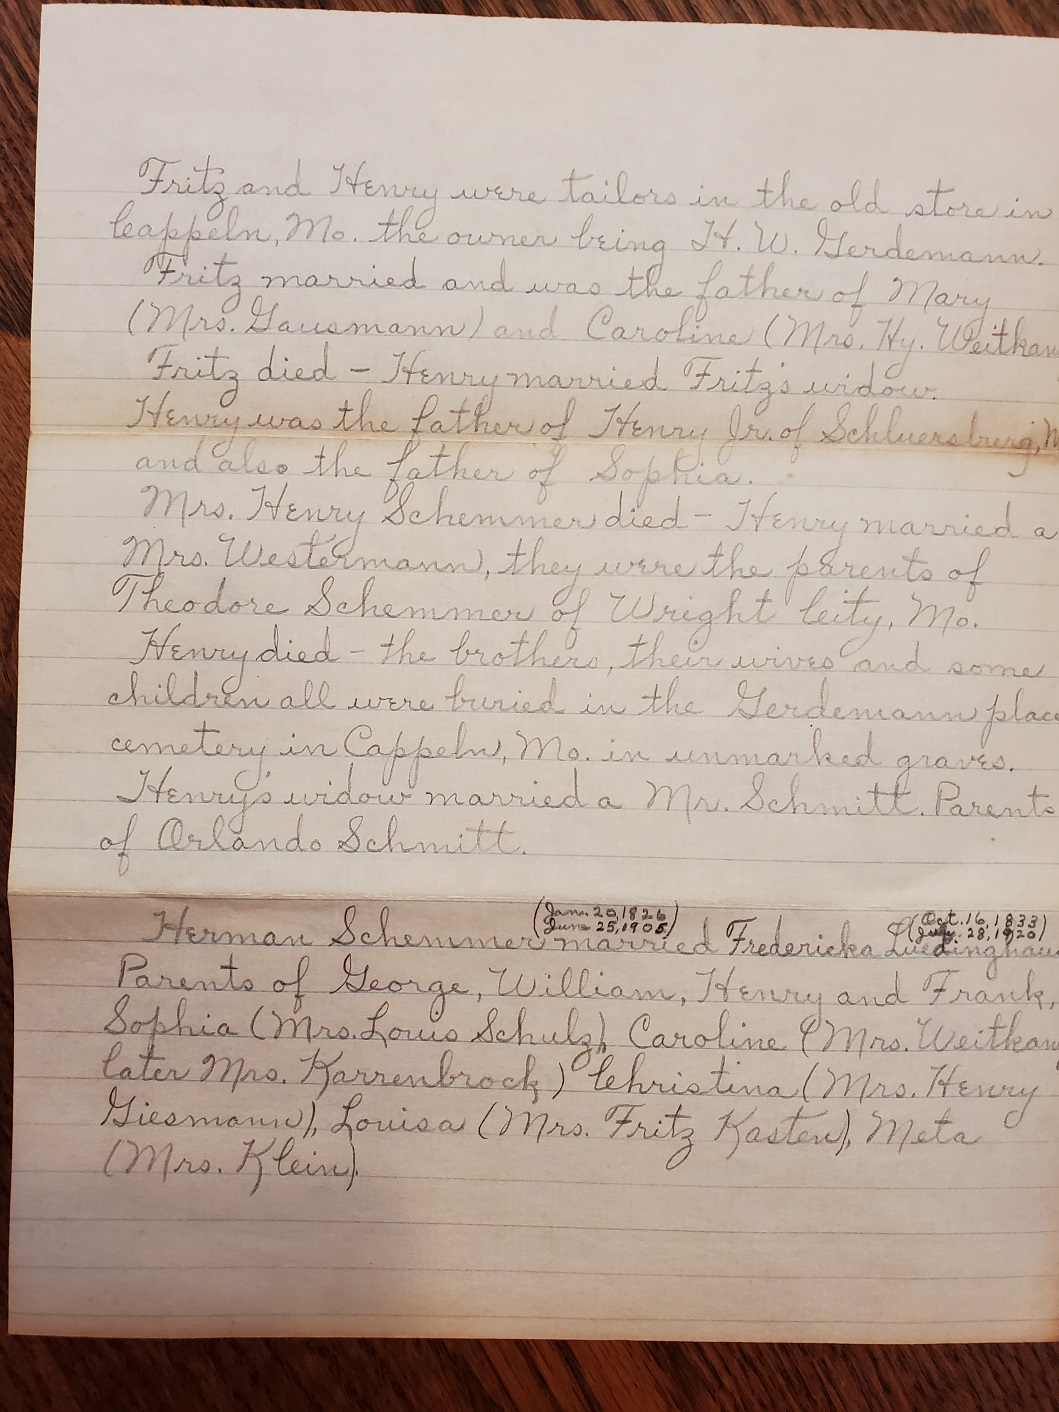 Fritz and Henry were tailors in the old store in
Cappeln, Mo. the owner being H. W. Gerdemann.
Fritz married and was the father of Mary
(Mrs. Gausmann) and Caroline (Mrs. Hy. Weitkam
Fritz died - Henry married Fritz's widow.
Henry was the father of Henry Jr. of Schluersberg, M
and also the father of Sophia.
Mrs. Henry Schemmer died - Henry married a
Mrs. Westermann), they were the parents of
Theodore Schemmer of Wright City, Mo.
Henry died - the brothers, their wives and some
children all were buried in the Gerdemann place
cemetery in Cappeln, Mo. in unmarked graves.
Henry's widow married a Mr. Schmitt. Parents
of Orlando Schmitt.
(Jan. 20, 1826 (Oct. 16, 1833)
June 25, 1905) July 28, 1920)
Herman Schemmer married Fredericka Luedinghau
Parents of George, William, Henry and Frank,
Sophia (Mrs. Louis Schulz), Caroline (Mrs. Weitkam
later Mrs. Karrenbrock) Christina (Mrs. Henry
Giesmann), Louisa (Mrs. Fritz Kasten), Meta
(Mrs. Klein).